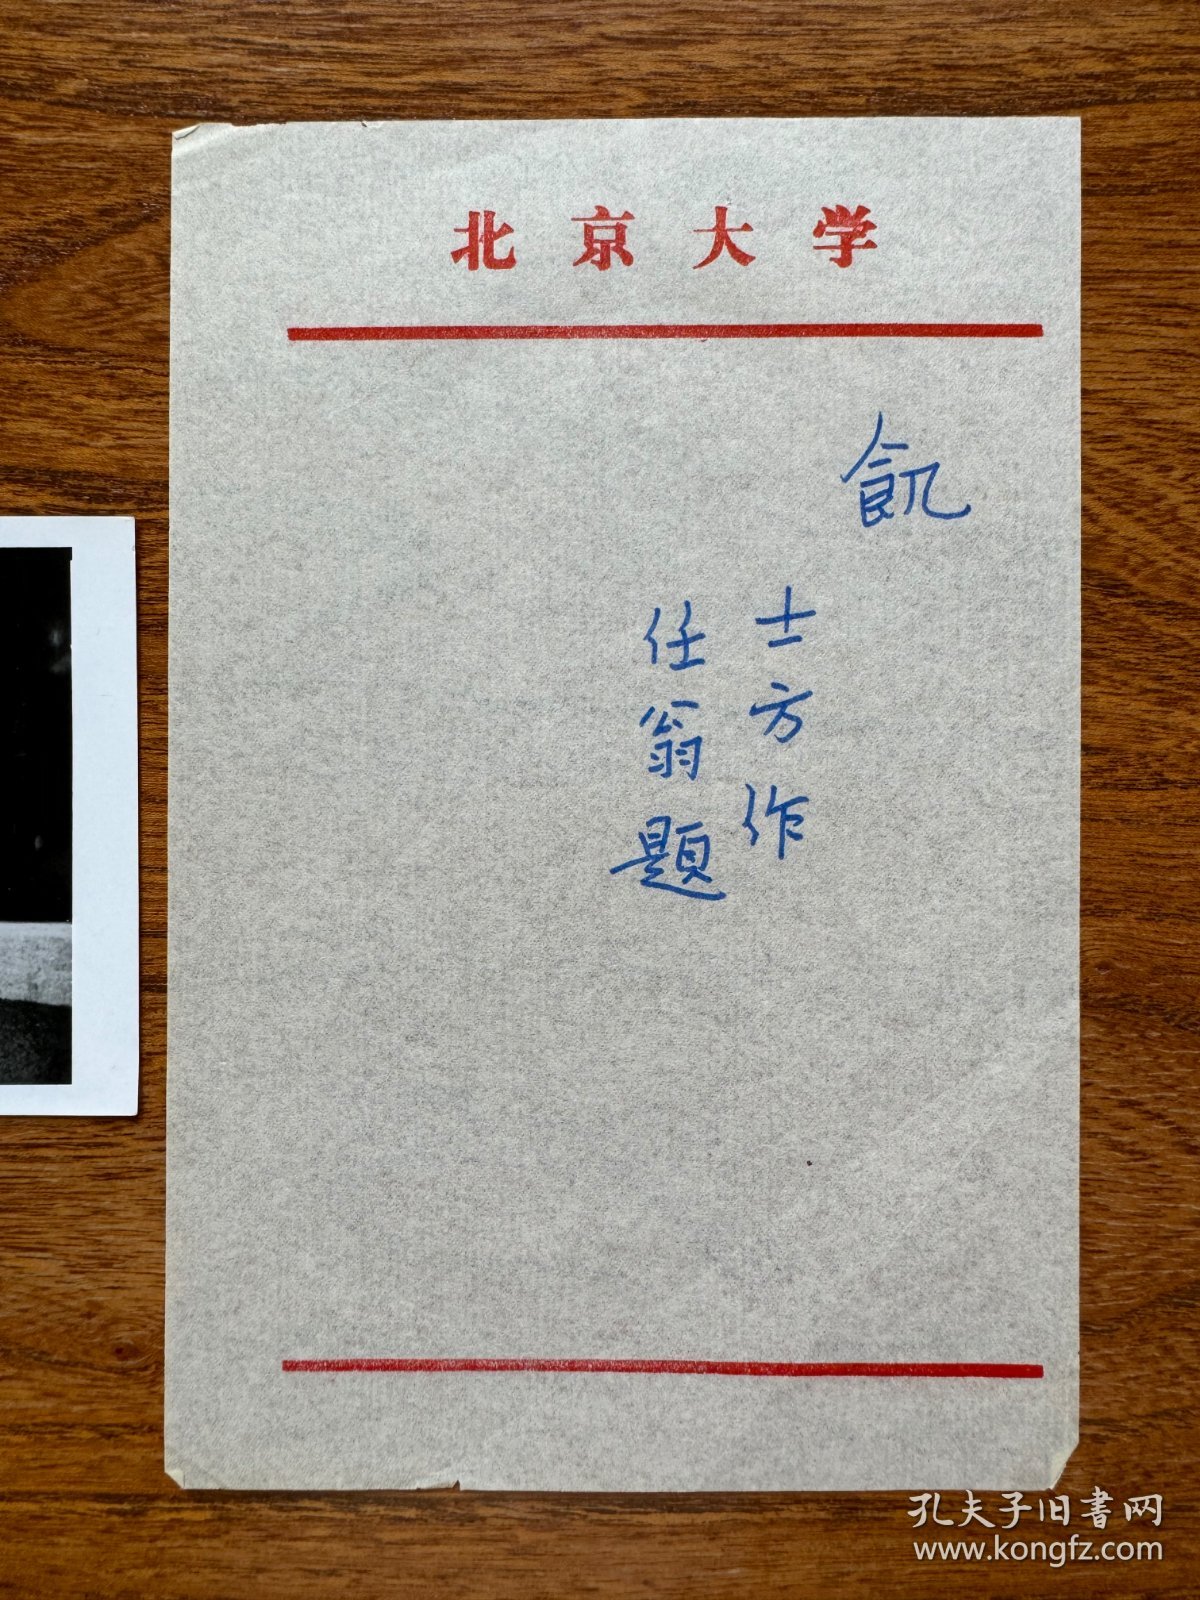 北京大学
飢
士方作
任翁題
孔夫子旧書网
www.kongfz.com